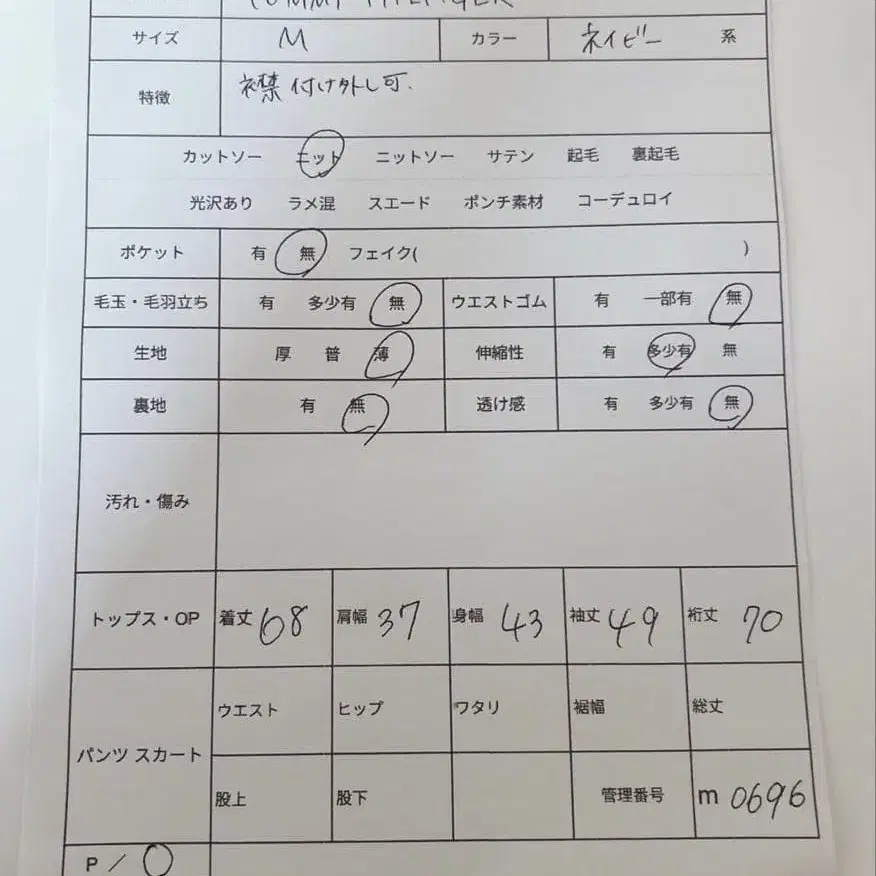 TOMMY HILFIGER
サイズ M カラー ネイビー 系
特徴 襟付け外し可.
カットソー ニット ニットソー サテン 起毛 裏起毛
光沢あり ラメ混 スエード ポンチ素材 コーデュロイ
ポケット 有 無 フェイク( )
毛玉・毛羽立ち 有 多少有 無 ウエストゴム 有 一部有 無
生地 厚 普 薄 伸縮性 有 多少有 無
裏地 有 無 透け感 有 多少有 無
汚れ・傷み
トップス・OP 着丈 68 肩幅 37 身幅 43 袖丈 49 裄丈 70
パンツ スカート ウエスト ヒップ ワタリ 裾幅 総丈
股上 股下 管理番号 m 0696
P / O